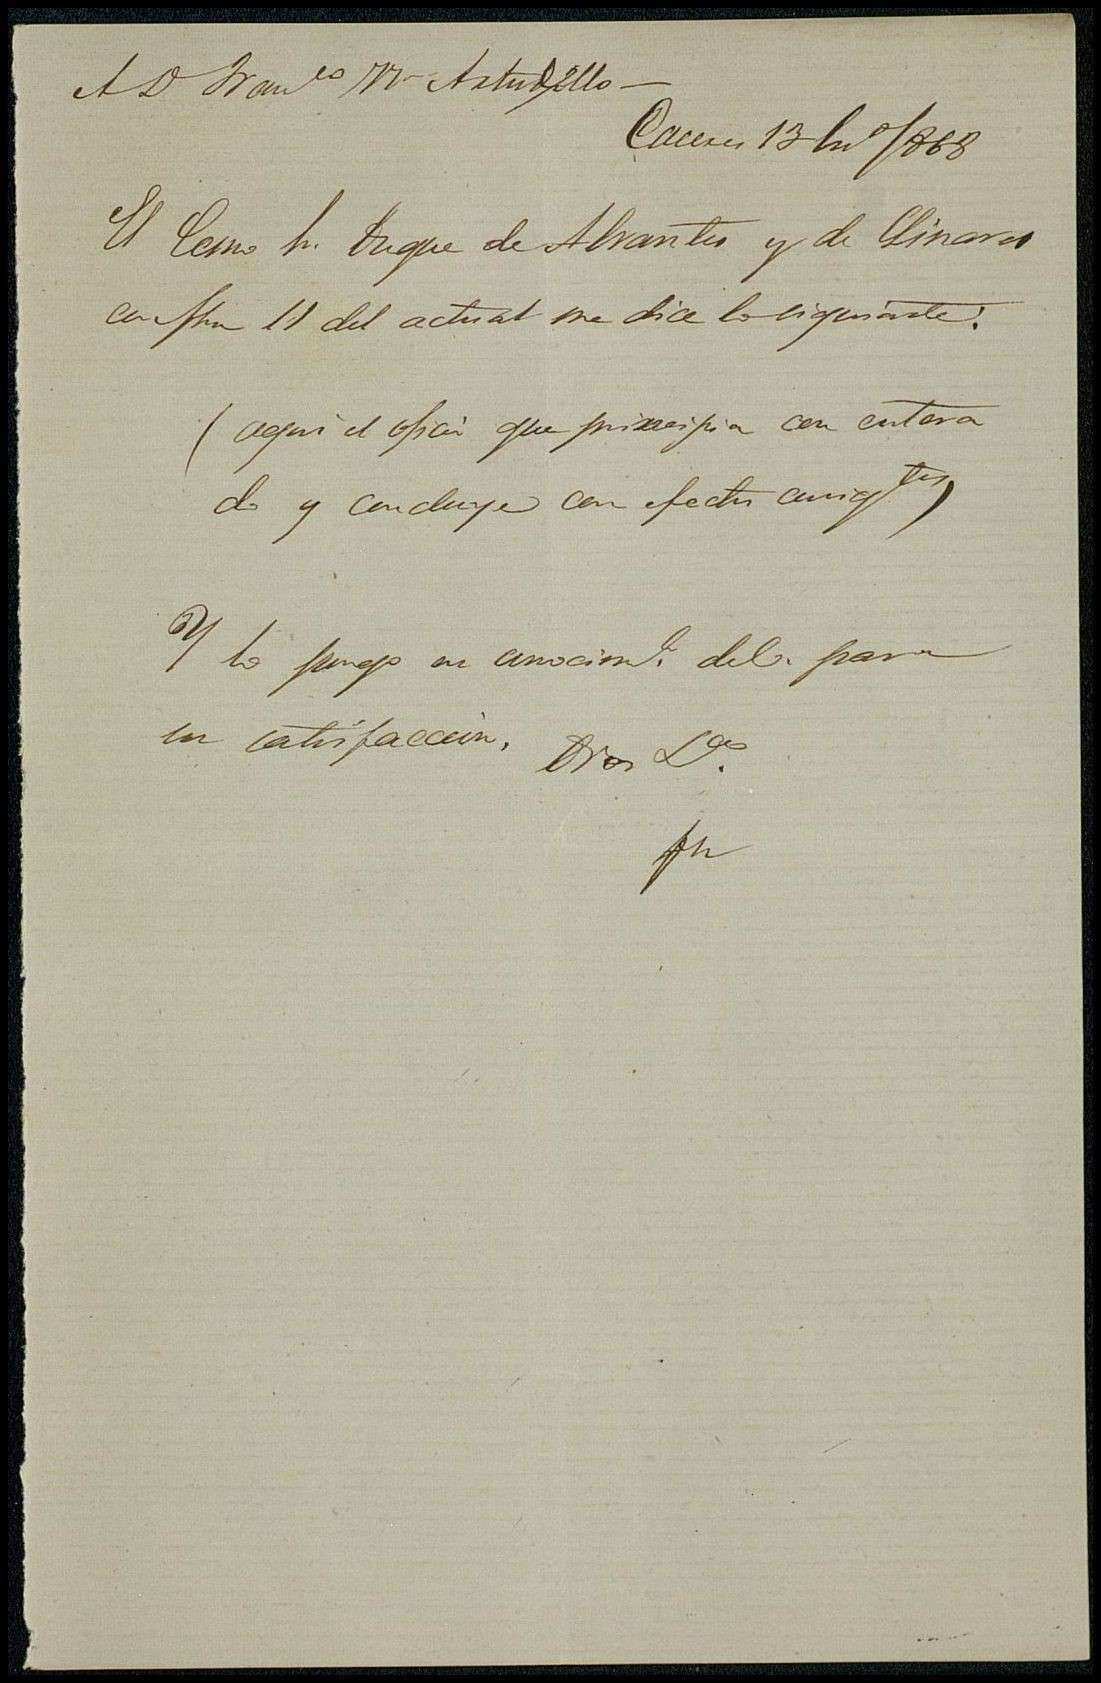 A D Fran.co M.a Astudillo —
Caceres 13 En.o/868
El Excmo Sr. Duque de Abrantes y de Linares
con fha 11 del actual me dice lo siguiente:
(aqui el oficio que principia con entera
do y concluye con efectos consig.tes)
Y lo pongo en conocim.to de V. para
su satisfaccion. Dios &.a